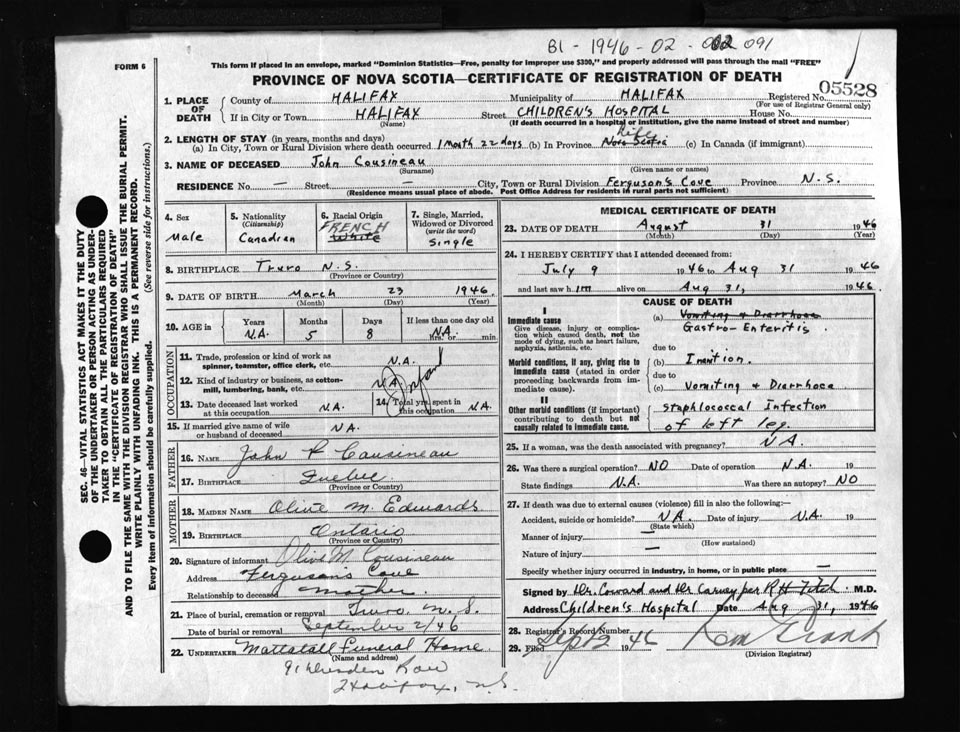 B1-1946-02-002091
FORM 6
This form if placed in an envelope, marked "Dominion Statistics—Free, penalty for improper use $300," and properly addressed will pass through the mail "FREE"
PROVINCE OF NOVA SCOTIA—CERTIFICATE OF REGISTRATION OF DEATH
05528
1. PLACE OF DEATH County of HALIFAX Municipality of HALIFAX Registered No. (For use of Registrar General only)
If in City or Town HALIFAX (Name) Street CHILDREN'S HOSPITAL House No.
(If death occurred in a hospital or institution, give the name instead of street and number)
2. LENGTH OF STAY (in years, months and days)
(a) In City, Town or Rural Division where death occurred 1 month 22 days (b) In Province Life Nova Scotia (c) In Canada (if immigrant)
3. NAME OF DECEASED John Cousineau
(Surname) (Given name or names)
RESIDENCE No. — Street — City, Town or Rural Division Ferguson's Cove Province N.S.
(Residence means usual place of abode. Post Office Address for residents in rural parts not sufficient)
4. Sex Male
5. Nationality (Citizenship) Canadian
6. Racial Origin FRENCH White
7. Single, Married, Widowed or Divorced (write the word) Single
8. BIRTHPLACE Truro N.S.
(Province or Country)
9. DATE OF BIRTH March 23 1946
(Month) (Day) (Year)
10. AGE in Years N.A. Months 5 Days 8 If less than one day old N.A. hrs. or min.
OCCUPATION
11. Trade, profession or kind of work as spinner, teamster, office clerk, etc. N.A.
12. Kind of industry or business, as cotton-mill, lumbering, bank, etc. N.A. Infant
13. Date deceased last worked at this occupation N.A. 14. Total yrs. spent in this occupation N.A.
15. If married give name of wife or husband of deceased N.A.
FATHER
16. NAME John P Cousineau
17. BIRTHPLACE Quebec
(Province or Country)
MOTHER
18. MAIDEN NAME Olive M. Edwards
19. BIRTHPLACE Ontario
(Province or Country)
20. Signature of informant Olive M. Cousineau
Address Fergusons Cove
Relationship to deceased mother.
21. Place of burial, cremation or removal Truro. N.S.
Date of burial or removal September 2/46
22. UNDERTAKER Mattatall Funeral Home
(Name and address)
91 Dresden Row
Halifax, N.S.
MEDICAL CERTIFICATE OF DEATH
23. DATE OF DEATH August 31 1946
(Month) (Day) (Year)
24. I HEREBY CERTIFY that I attended deceased from:
July 9 1946 to Aug 31 1946
and last saw h im alive on Aug 31, 1946.
CAUSE OF DEATH
I
Immediate cause
Give disease, injury or complication which caused death, not the mode of dying, such as heart failure, asphyxia, asthenia, etc.
(a) Vomiting & Diarrhoea
Gastro-Enteritis.
due to
Morbid conditions, if any, giving rise to immediate cause (stated in order proceeding backwards from immediate cause).
(b) Inanition.
due to
(c) Vomiting & Diarrhoea
II
Other morbid conditions (if important) contributing to death but not causally related to immediate cause.
Staphlococcal Infection
of left leg.
25. If a woman, was the death associated with pregnancy? N.A.
26. Was there a surgical operation? NO Date of operation N.A. 19
State findings N.A. Was there an autopsy? NO
27. If death was due to external causes (violence) fill in also the following:—
Accident, suicide or homicide? N.A. Date of injury N.A. 19
(State which)
Manner of injury —
(How sustained)
Nature of injury —
Specify whether injury occurred in industry, in home, or in public place —
Signed by Dr. Coward and Dr Carney per R H Fitch M.D.
Address Children's Hospital Date Aug 31, 1946
28. Registrar's Record Number
29. Filed Sept 2 1946
(Division Registrar)
SEC. 46—VITAL STATISTICS ACT MAKES IT THE DUTY
OF THE UNDERTAKER OR PERSON ACTING AS UNDER-
TAKER TO OBTAIN ALL THE PARTICULARS REQUIRED
IN THE "CERTIFICATE OF REGISTRATION OF DEATH"
AND TO FILE THE SAME WITH THE DIVISION REGISTRAR WHO SHALL ISSUE THE BURIAL PERMIT.
WRITE PLAINLY WITH UNFADING INK. THIS IS A PERMANENT RECORD.
Every item of information should be carefully supplied. (See reverse side for instructions.)